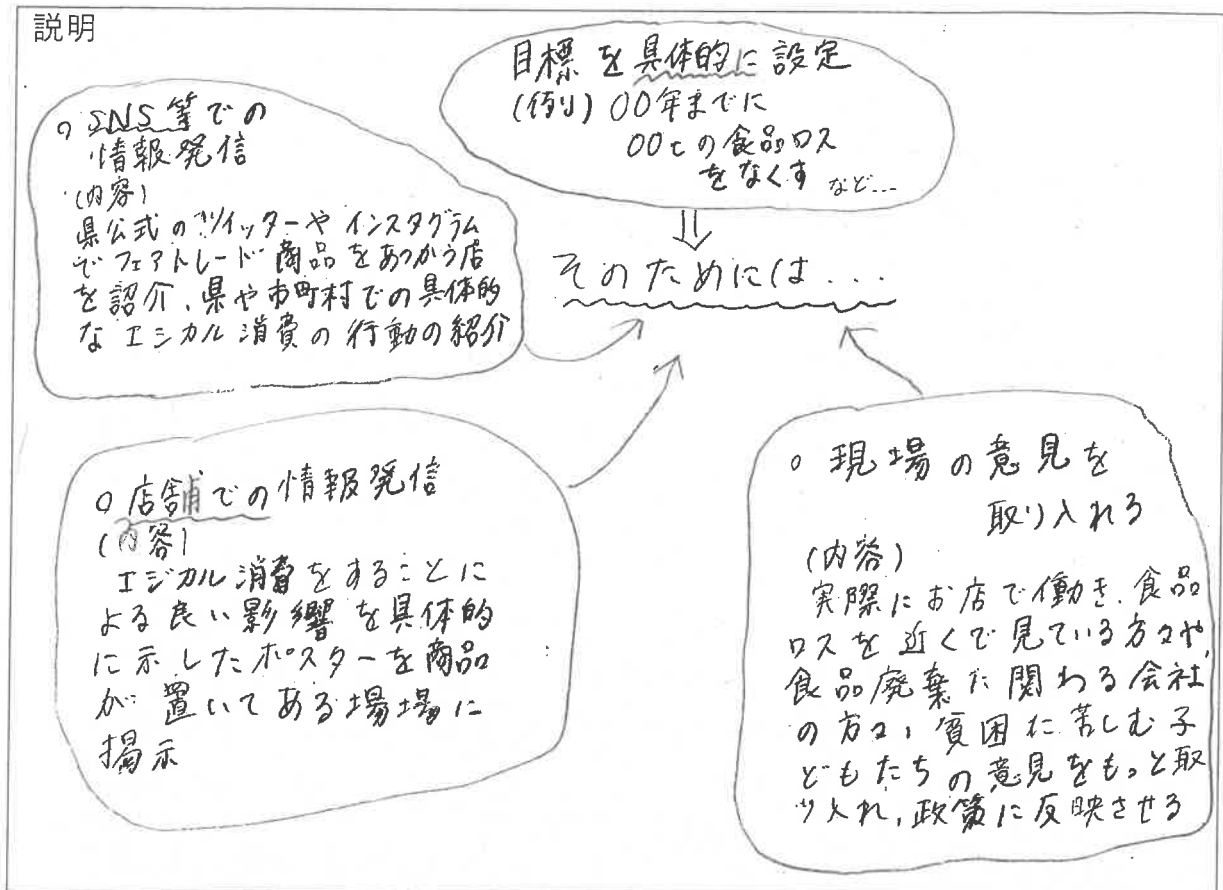 説明
目標を具体的に設定
(例) 〇〇年までに
〇〇tの食品ロス
をなくす など...
そのためには...
○ SNS等での
情報発信
(内容)
県公式のツイッターやインスタグラム
でフェアトレード商品をあつかう店
を紹介、県や市町村での具体的
なエシカル消費の行動の紹介
○ 店舗での情報発信
(内容)
エジカル消費をすることに
よる良い影響を具体的
に示したポスターを商品
が置いてある場場に
掲示
○ 現場の意見を
取り入れる
(内容)
実際にお店で働き、食品
ロスを近くで見ている方々や、
食品廃棄に関わる会社
の方々、貧困に苦しむ子
どもたちの意見をもっと取
り入れ、政策に反映させる